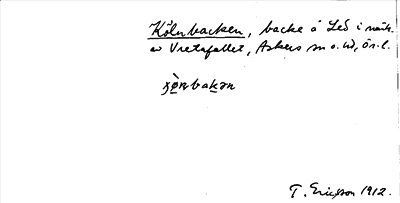 Kölnbacken, backe å Led i närh.
av Vretafallet, Askers sn o. hd, ör. l.
ɟø̀nbakən
T. Ericsson 1912.